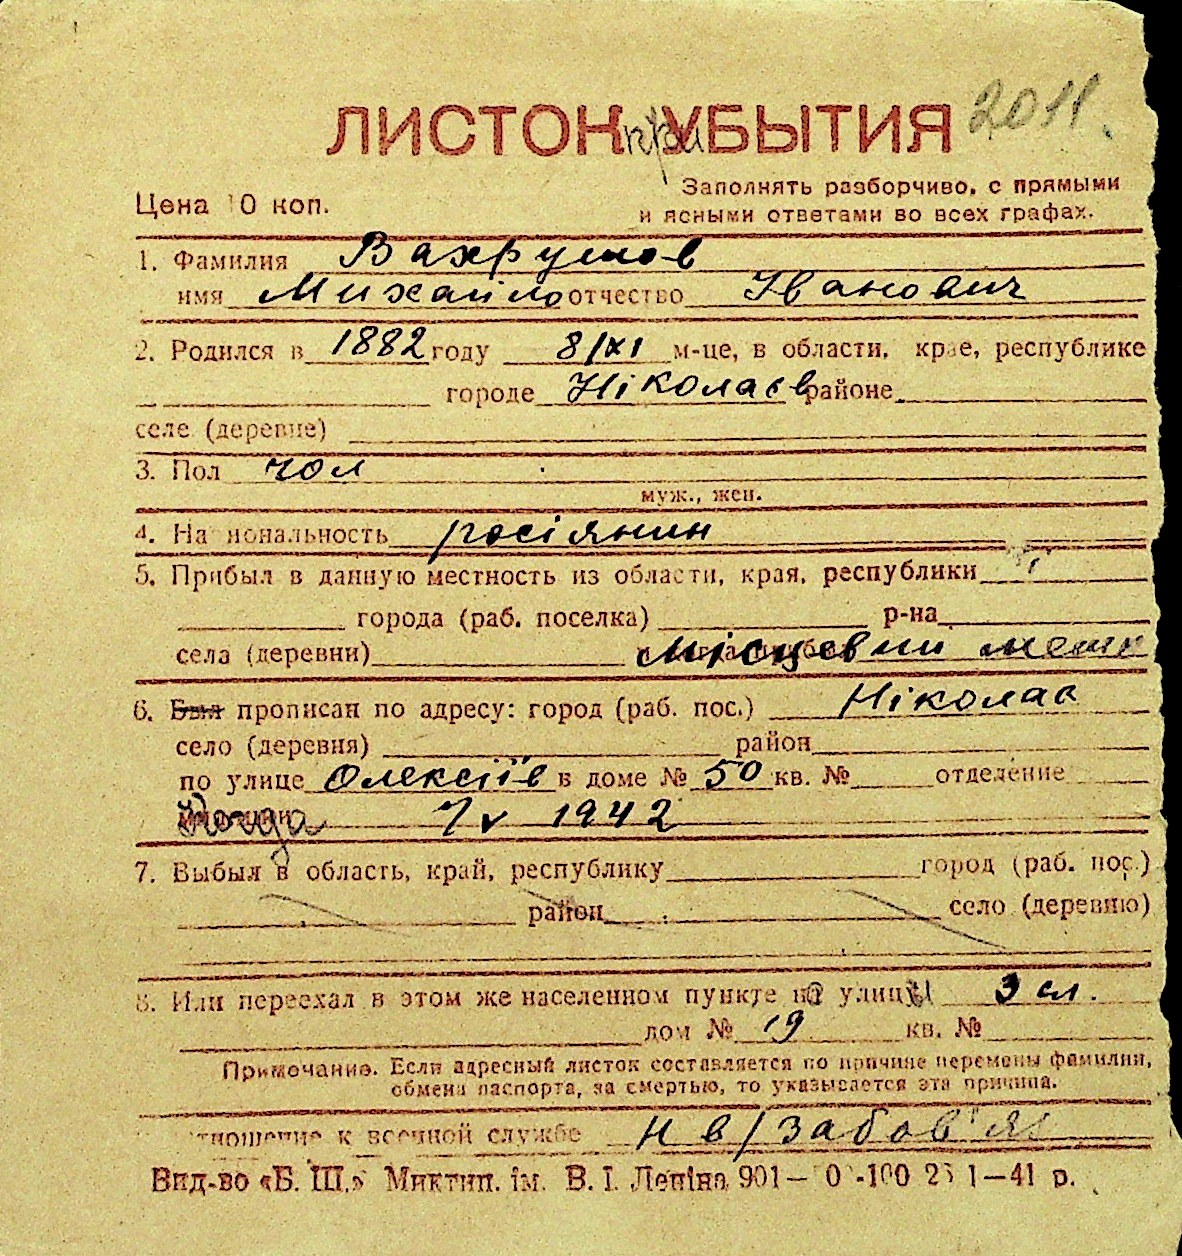 ЛИСТОК УБЫТИЯ 2011
при
Цена 10 коп.
Заполнять разборчиво, с прямыми
и ясными ответами во всех графах.
1. Фамилия Вахрушов
имя Михайло отчество Іванович
2. Родился в 1882 году 8/XI м-це, в области, крае, республике
городе Ніколаєв районе
селе (деревне)
3. Пол чол
муж., жен.
4. Национальность росіянин
5. Прибыл в данную местность из области, края, республики
города (раб. поселка) р-на
села (деревни) Місцевий меш
6. Был прописан по адресу: город (раб. пос.) Ніколає
село (деревня) район
по улице Олексіїв в доме № 50 кв. № отделение
Когда 7/V 1942
7. Выбыл в область, край, республику город (раб. пос.)
район село (деревню)
8. Или переехал в этом же населенном пункте на улицу 3 сл.
дом № 19 кв. №
Примечание. Если адресный листок составляется по причине перемены фамилии,
обмена паспорта, за смертью, то указывается эта причина.
отношение к военной службе нв/забов'яз
Вид-во «Б. Ш.» Миктип. ім. В. І. Леніна 901— 0 -100 1—41 р.